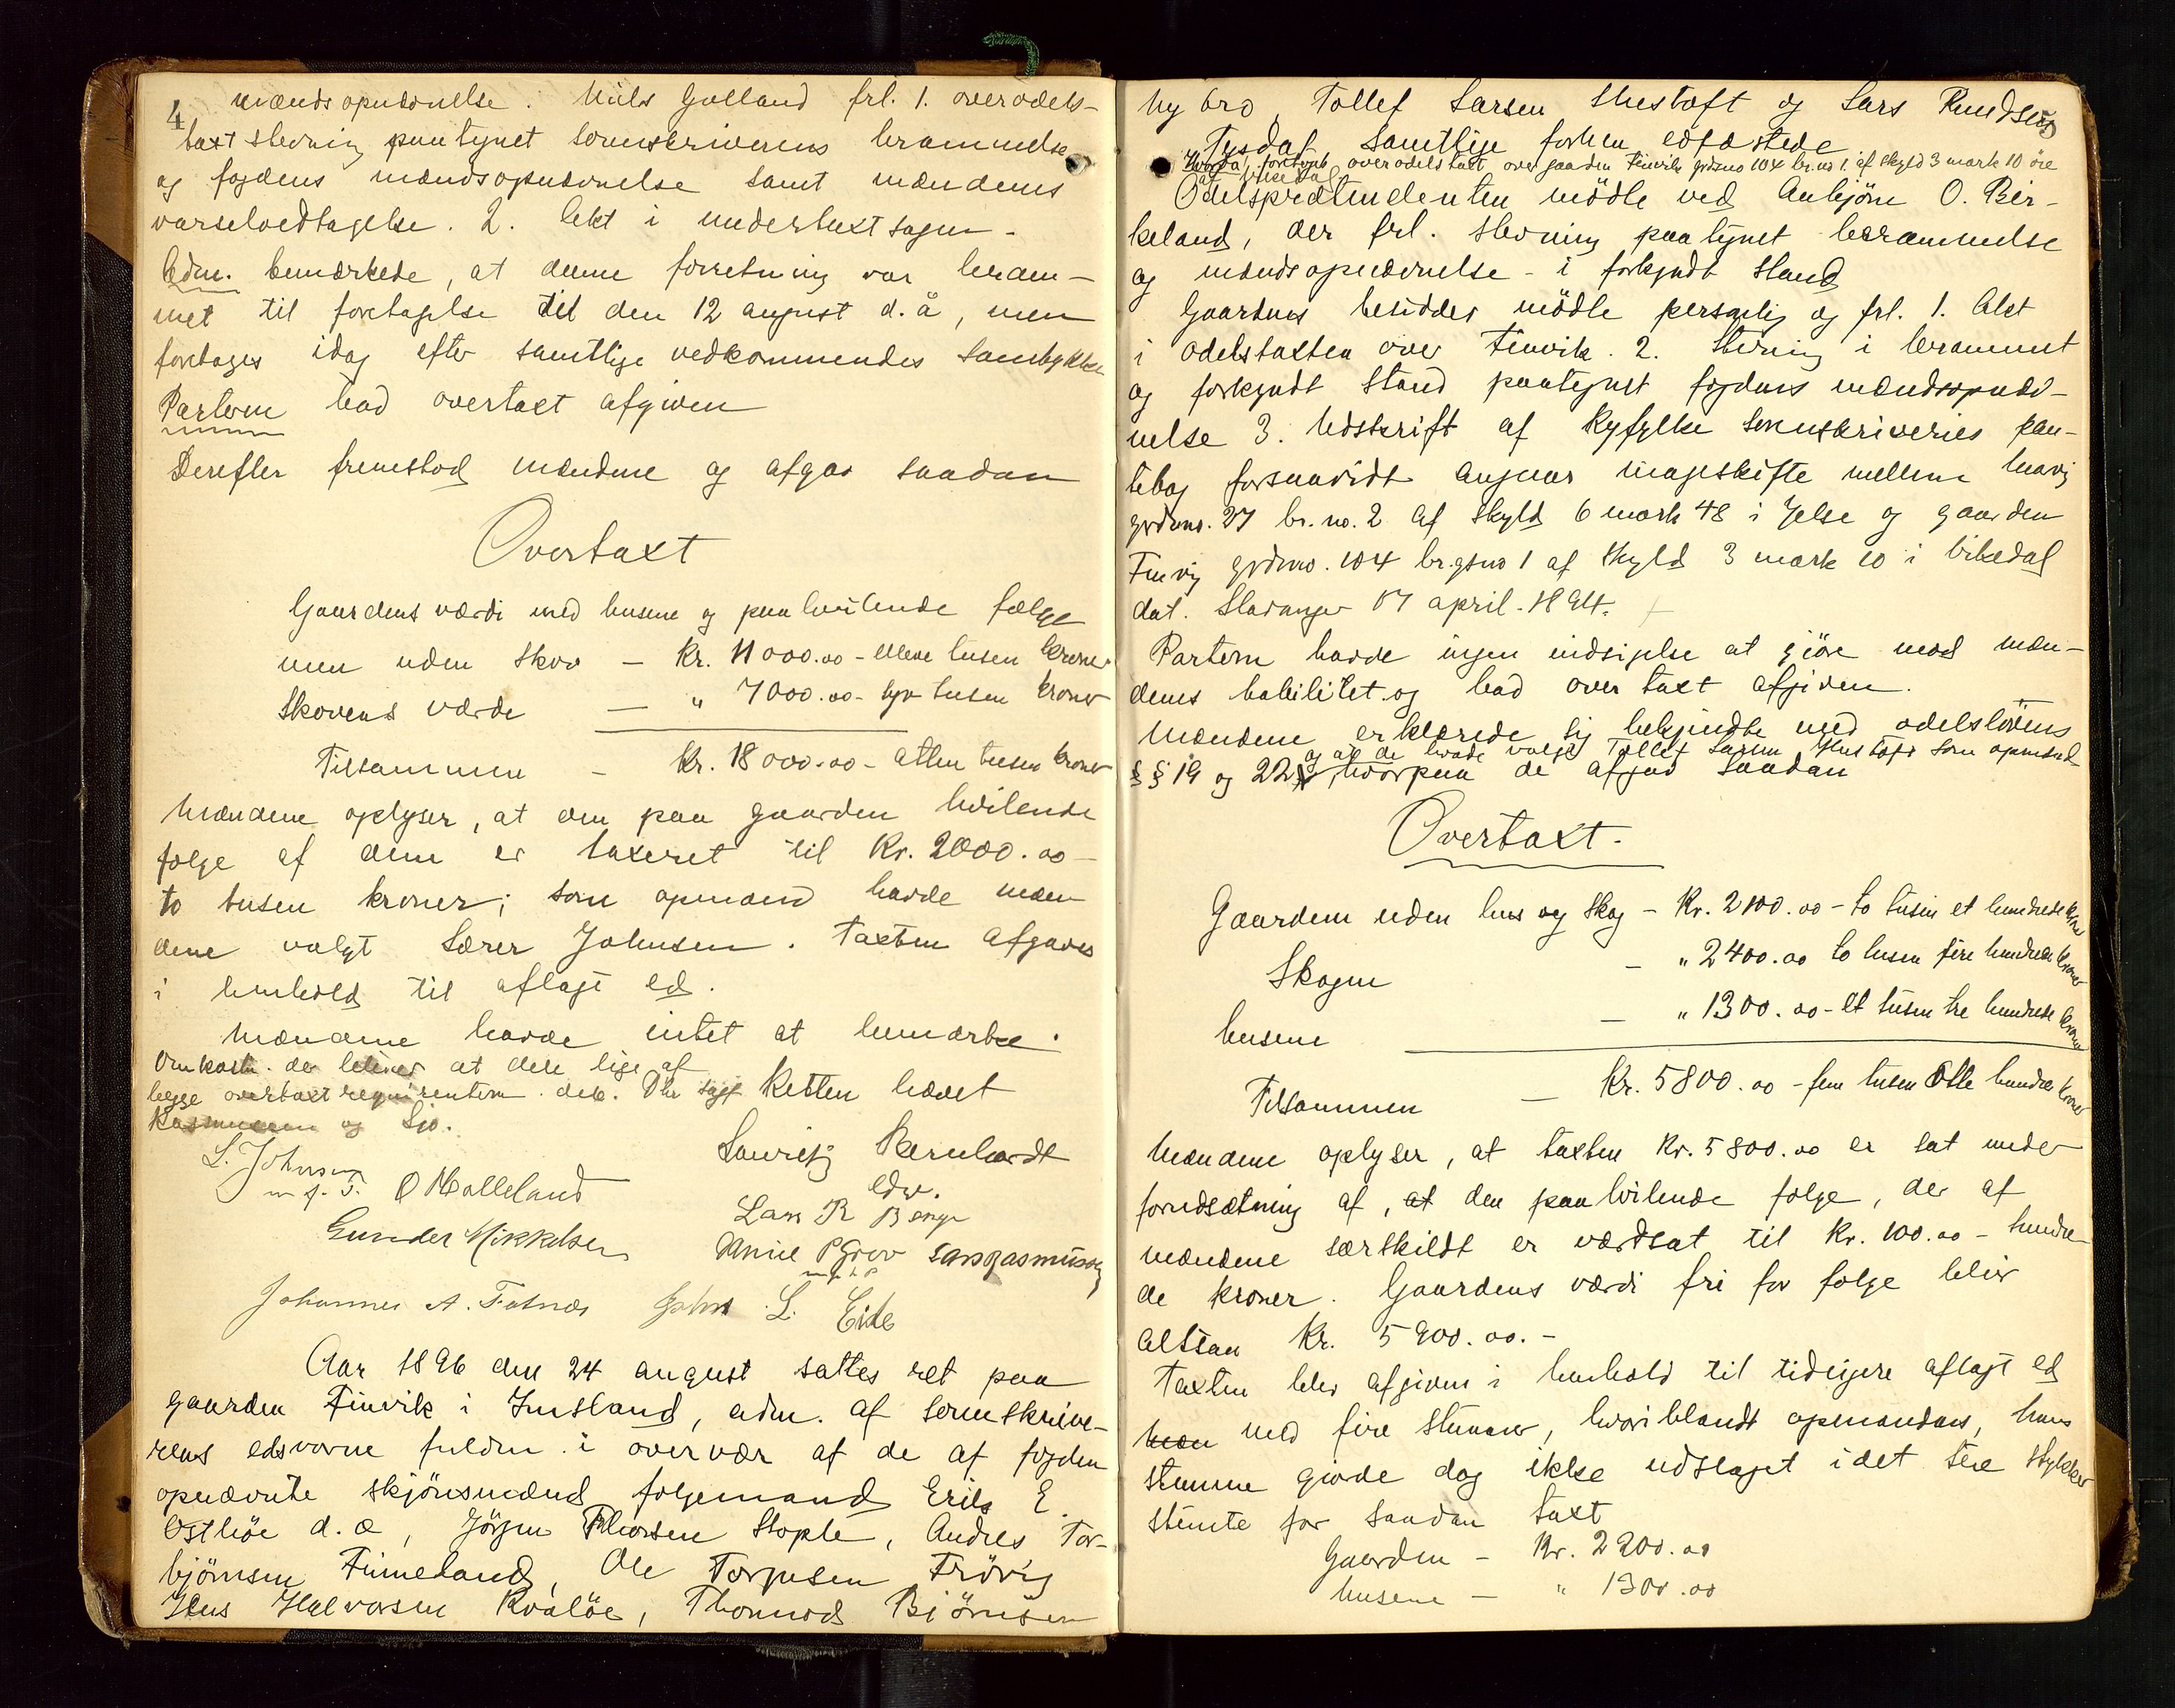 4
mændsopnævnelse. Niels Gulland frl. 1. overodels-
taxt stevning paategnet sorenskriverens berammelse
og fogdens mændsopnævnelse samt mændenes
varselvedtagelse. 2. Akt i undertaxtsagen.
Adm. bemærkede, at denne forretning var beram-
met til foretagelse til den 12 august d. å, men
foretages idag efter samtlige vedkommendes samtykke
Parterne bad overtaxt afgiven
Derefter fremstod mændene og afgav saadan
Overtaxt
Gaardens værdi med husene og paahvilende følge
men uden skov – Kr. 11000.00 - elleve tusen kroner
Skovens værde – " 7000.00 - syv tusen kroner
Tilsammen – Kr. 18000.00 - atten tusen kroner
Mændene oplyser, at den paa gaarden hvilende
følge af dem er taxeret til Kr. 2000.00 -
to tusen kroner; som opmand havde mæn
dene valgt Johnsen. Taxten afgaves
i henhold til aflagt ed.
Mændene havde intet at bemærke.
Omkost. der bliver at dele lige af
begge overtaxtrequirenterne Retten hævet
Rasmussen og
L. Johnsen Lauritz Bernhardt
m. f. P. O Halleland edsv.
Lars R Berge
Gunder Mikkelsen P Grov Lars Rasmussen
m. f. P.
Johannes A. Fatnæs John L. Eide
Aar 1896 den 24 august sattes ret paa
gaarden Finvik i Imsland, adm. af sorenskrive-
rens edsvorne fuldm. i overvær af de af fogden
opnævnte skjönsmænd følgemand Erik E.
Østhöe d. æ, Jörgen Stople, Andres Tor-
björnsen Finneland, Ole Torgersen Frövig
Jens Halvorsen Kvalöe, Thormod Björnsen
5
Nybro, Tollef Larsen Hustoft og Lars Knudsen
Tysdal, samtlige forhen edfæstede
Hvorda foretoges overodelstaxt over gaarden Finvik grdsno 104 br.no 1 af skyld 3 mark 10 öre
af Vikedal
Odelsprætendenten mödte ved Anbjörn O. Bir-
keland, der frl. stevning paategnet berammelse
og mændsopnævnelse - i forkyndt stand
Gaardens besidder mödte personlig og frl. 1. Akt
i odelstaxten over Finvik. 2. Stevning i berammet
og forkyndt stand paategnet fogdens mændsopnæv-
nelse 3. Udskrift af Ryfylke sorenskriveries pan-
tebog forsaavidt angaar mageskifte mellem
grdsno. 27 br.no. 2 af skyld 6 mark 48 i Jelse og gaarden
Finvig grdsno. 104 br.gsno 1 af skyld 3 mark 10 i Vikedal
dat. Stavanger 17 april. 1894.
Parterne havde ingen indsigelse at gjöre mod mæn-
denes habilitet og bad over taxt afgiven.
Mændene erklærede sig bekjendte med odelslovens
og at de havde valgt Tollef Larsen Hustoft som opmand
§§ 19 og 22, hvorpaa de afgav saadan
Overtaxt.
Gaarden uden hus og skog - Kr. 2100.00 - to tusin et hundrede kroner
Skogen – " 2400.00 to tusen fire hundrede kroner
husene – " 1300.00 - et tusen tre hundrede kroner
Tilsammen – Kr. 5800.00 - fem tusen otte hundre kroner
Mændene oplyser, at taxten Kr. 5800.00 er sat under
forudsætning af, at den paahvilende følge, der af
mændene særskildt er værdsat til Kr. 100.00 - hundre-
de kroner. Gaardens værdi fri for følge blir
altsaa Kr. 5900.00.-
Taxten blev afgiven i henhold til tidligere aflagt ed
med fire stemmer, hvoriblandt opmandens, hans
stemme gjorde dog ikke udslaget idet tre stykker
stemte for saadan taxt
Gaarden - Kr. 2200.00
husene – " 1300.00